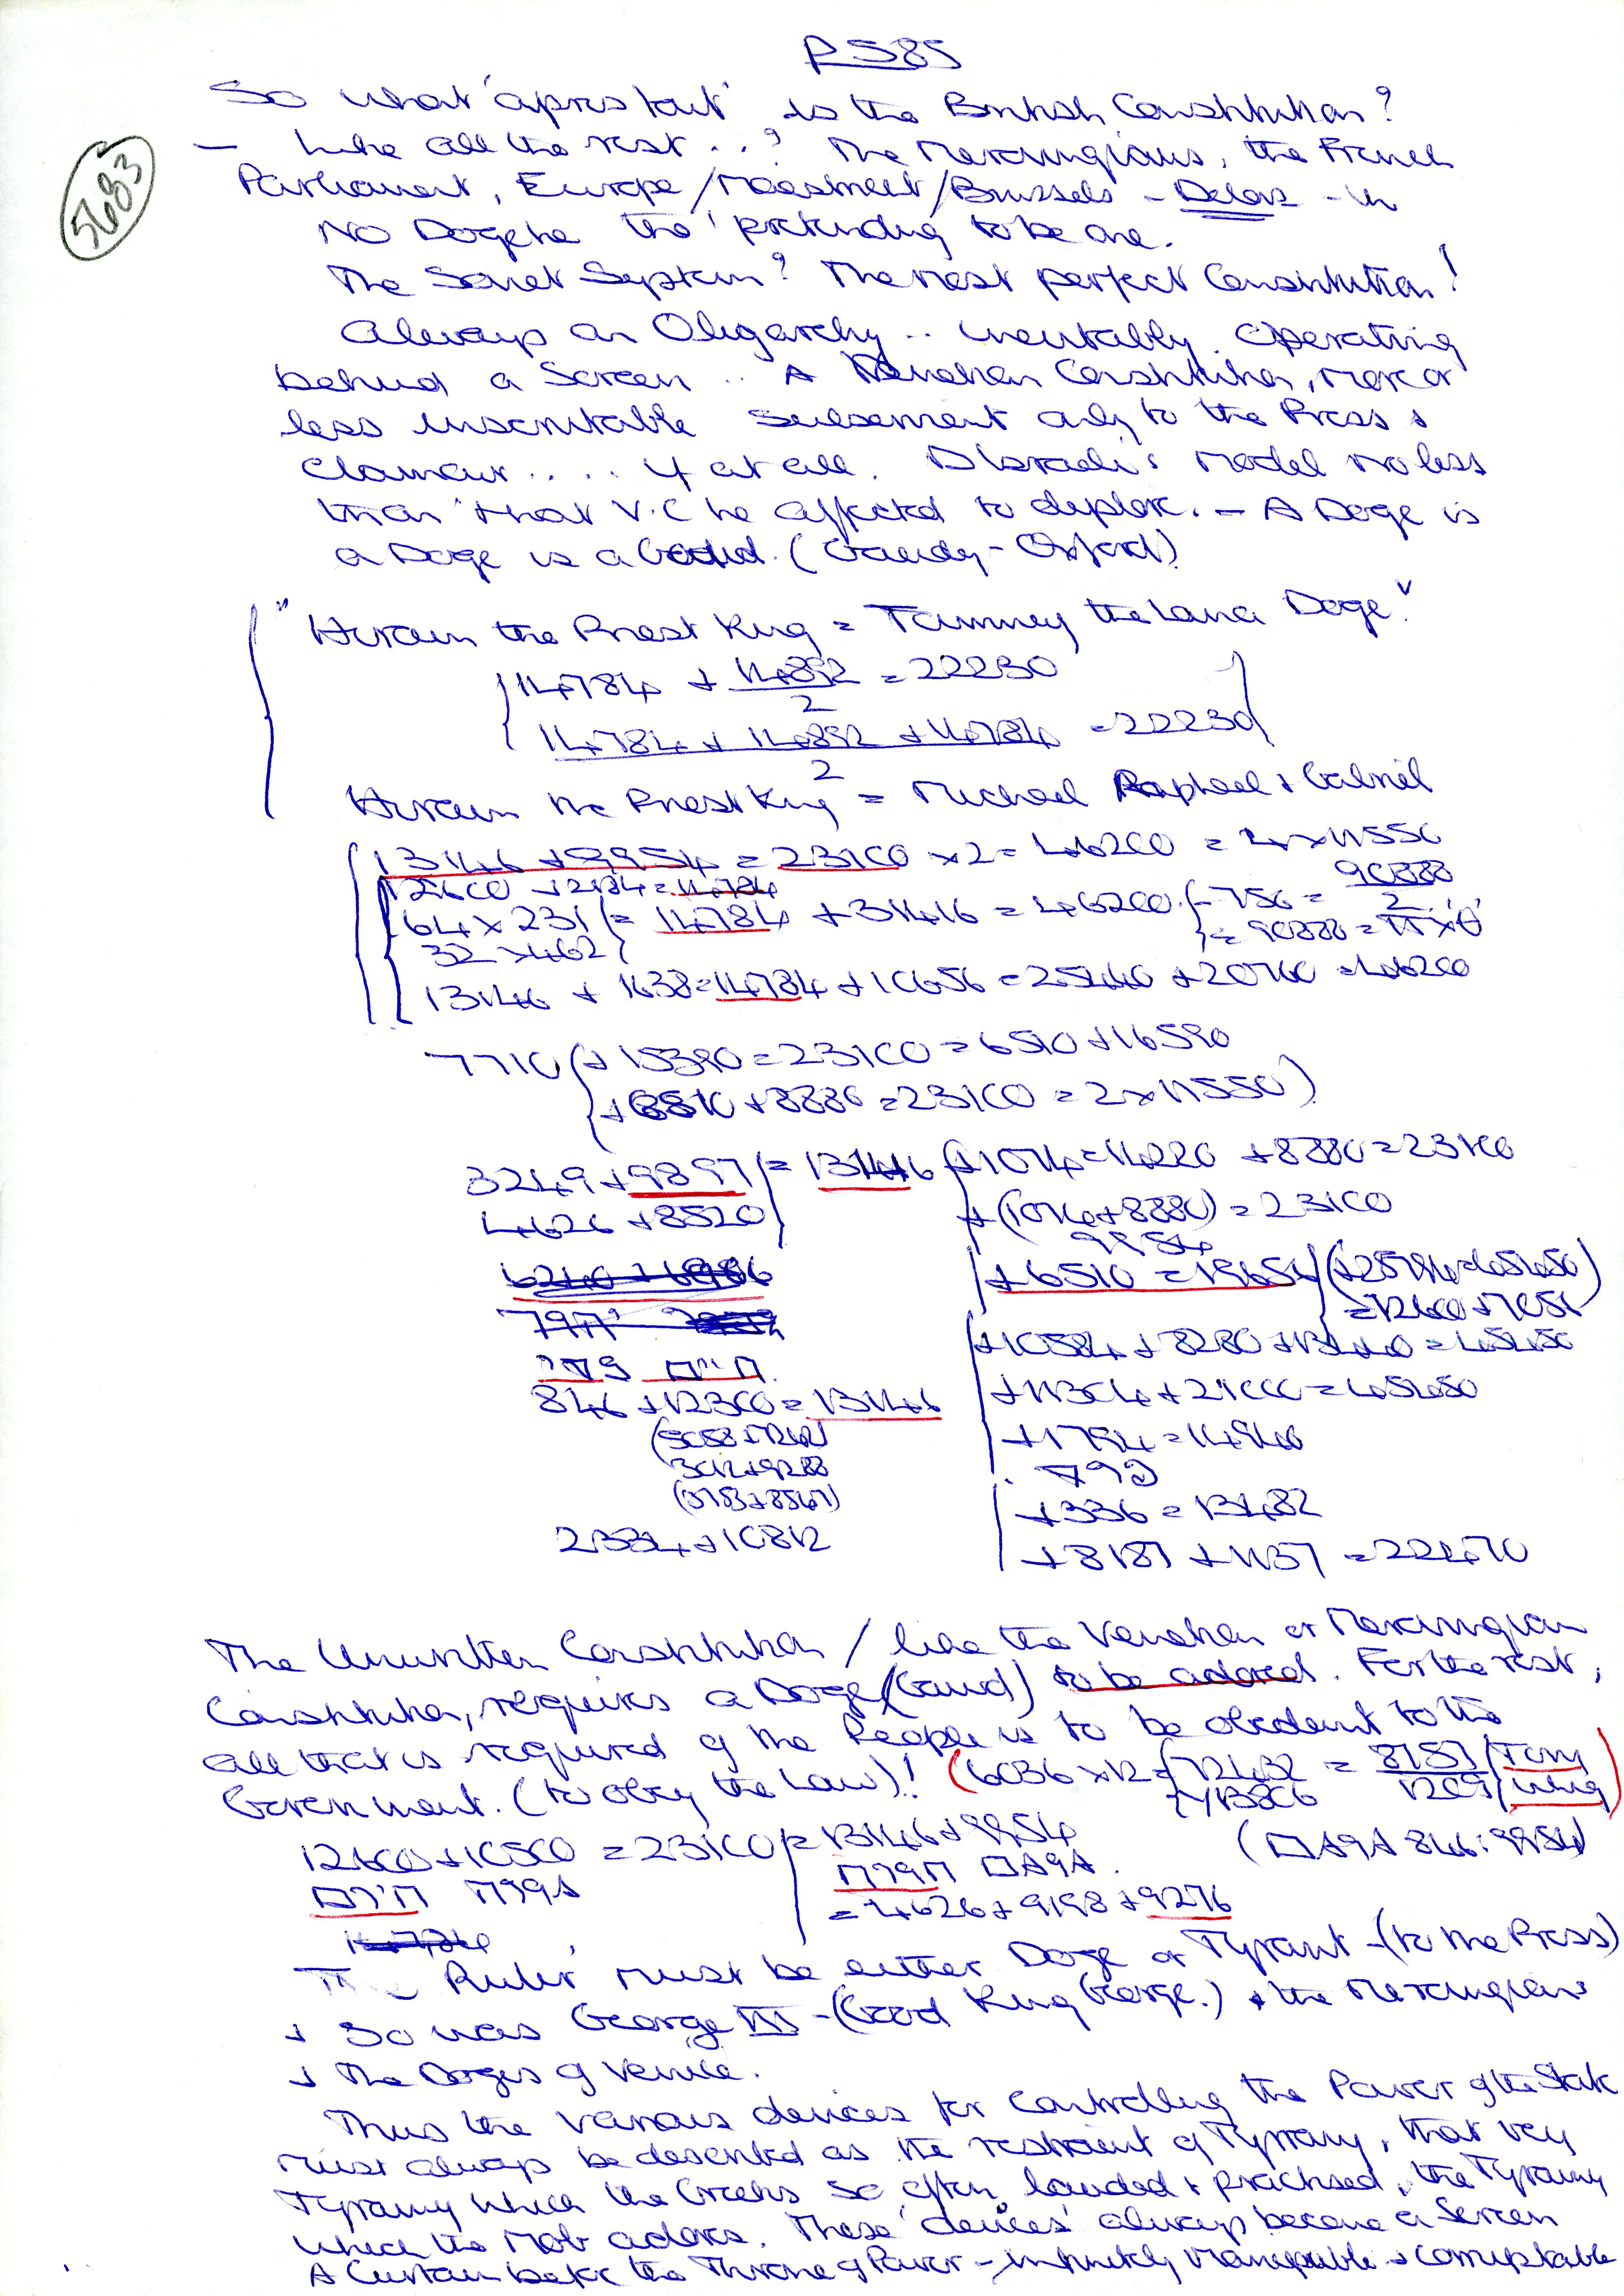 P585
5683
So what 'apres tout' is the British Constitution?
- Like all the rest...? The Merovingians, the French
Parliament, Europe/Maastricht/Brussels - Delors - is
No Doge he tho' pretending to be one.
The Soviet System? The most perfect Constitution!
Always an Oligarchy .. inevitably. Operating
behind a Screen .. A Venetian Constitution, more or
less inscrutable subservient only to the Press &
Clamour.... if at all. Disraeli's model no less
than that V.C he affected to deplore. - A Doge is
a Doge is a Gaud. (Gaudy - Oxford)
"Hiram the Priest King = Tammey the Lana Doge"
14784 + 14892/2 = 22230
14784 + 14892 + 14784 / 2 = 22230
Hiram the Priest King = Michael Raphael & Gabriel
13146 + 9954 = 23100 x2 = 46200 = 4x11550
12600 + 2184 = 14784
64 x 231 = 14784 + 31416 = 46200 - 756 = 90888/2
32 x 462 = 90888 = π x
13146 + 1638 = 14784 + 10656 = 25440 + 20760 = 46200
7710 + 15390 = 23100 = 6510 + 16590
+ 6510 + 8880 = 23100 = 2 x 11550)
3249 + 9897 = 13146 + 1074 = 14220 + 8880 = 23100
4626 + 8520 + (1074 + 8880) = 23100
9954
+ 6510 = 19656
= 12600 + 7056
+ 10584 + 8280 + 13440 = 45450
846 + 12300 = 13146 + 11304 + 21000 = 45450
+ 1794 = 14940
3012 + 9288
(3783 + 8517)
+ 336 = 13482
2334 + 10812
+ 8187 + 1137 = 22470
The Unwritten Constitution / like the Venetian or Merovingian
Constitution, requires a Doge (Gaud) to be adored. For the rest,
all that is required of the People is to be obedient to the
Government. (to obey the Law)! (6036 x 12 = 72432 = 8187/Tory
1209/Whig)
12600 + 10500 = 23100 = 13146 + 9954
= 4626 + 9198 + 9276
Ruler must be either Doge or Tyrant - (to the Press)
& so was George III - (Good King George.) & the Merovingians
& the Doges of Venice.
Thus the various devices for controlling the Power of the State
must always be described as the restraint of Tyranny, that very
Tyranny which the Greeks so often lauded & practised, the Tyranny
which the Mob adores. These 'devices' always become a Screen
A Curtain before the Throne of Power - infinitely manipulable & corruptable